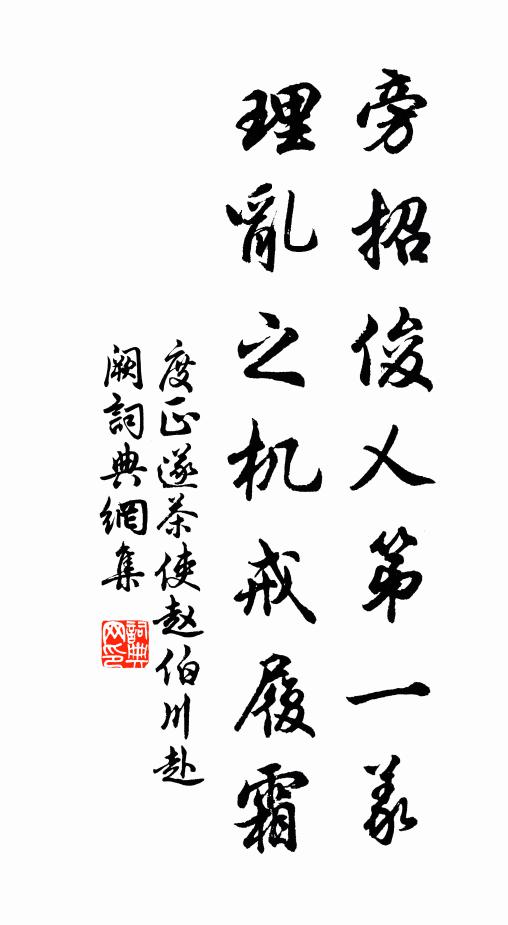 旁招俊乂第一义
理亂之机戒履霜
度正遂茶使赵伯川赴
阙詞典網集
詞典
网印